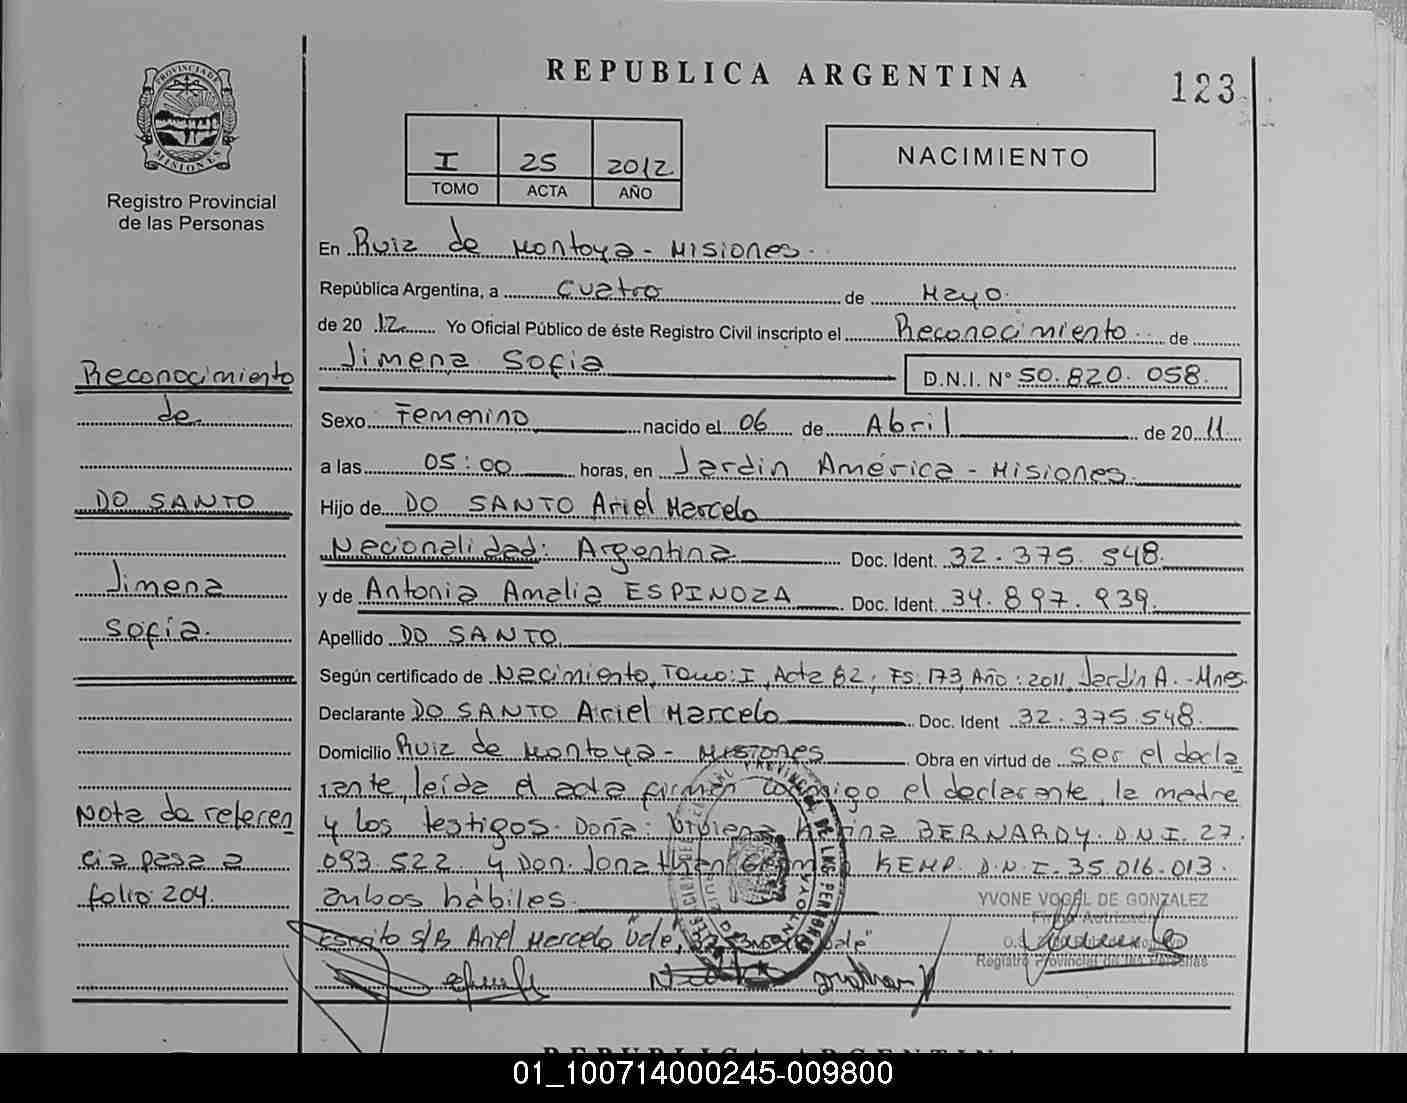 REPUBLICA ARGENTINA
123
PROVINCIA DE
MISIONES
Registro Provincial
de las Personas
I 25 2012
TOMO ACTA AÑO
NACIMIENTO
En Ruiz de Montoya - Misiones.
República Argentina, a Cuatro de Mayo.
de 20 12 Yo Oficial Público de éste Registro Civil inscripto el Reconocimiento de
Jimena Sofia D.N.I. N° 50.820.058.
Sexo Femenino nacido el 06 de Abril de 20 11
a las 05:00 horas, en Jardin América - Misiones.
Hijo de DO SANTO Ariel Marcelo
Nacionalidad: Argentina Doc. Ident. 32.375.548.
y de Antonia Amalia ESPINOZA Doc. Ident. 34.897.939.
Apellido DO SANTO.
Según certificado de Nacimiento, Tomo: I, Acta 82, Fs: 173, Año: 2011, Jardin A. - Mnes.
Declarante DO SANTO Ariel Marcelo Doc. Ident 32.375.548.
Domicilio Ruiz de Montoya - MISIONES Obra en virtud de ser el decla
rante, leída el acta firman conmigo el declarante, la madre
y los testigos. Doña: Viviena BERNARDY. D.N.I. 27.
093.522 y Don. Jonathan KEMP. D.N.I. 35.016.013.
ambos hábiles.
Escrito s/B Ariel Marcelo Vale,
YVONE VOGEL DE GONZALEZ
Firma Autrizada
Registro Provincial de las Personas
Reconocimiento
de
DO SANTO
Jimena
Sofía.
Nota de referen
cia pasa a
folio 204.
REPUBLICA ARGENTINA
01_100714000245-009800